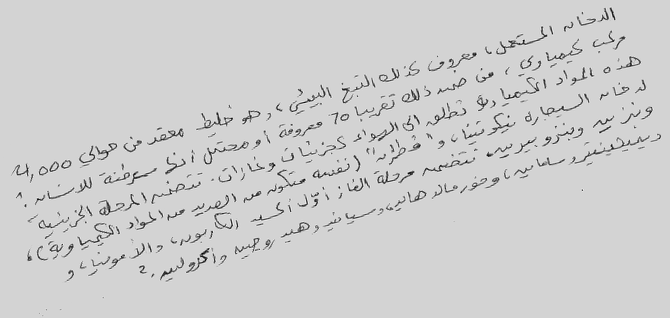 الدخان المستعمل، معروف كذلك التبغ البيئي، هو خليط معقد من حوالي 4,000
مركب كيمياوي، من ضمن ذلك تقريبا 70 معروفة أو محتمل أنها مسرطنة للانسان؛
هذه المواد الكيمياوية تطلق الى الهواء كجزئيات وغازات. تتضمن المرحلة الجزيئية
لدخان السيجارة نيكوتينا، و"قطران" (نفسه متكون من العديد من المواد الكيمياوية)،
وبنزين وبنزوبيرين. تتضمن مرحلة الغاز أول أكسيد الكاربون، والأمونيا، و
، وفورمالدهايد، وسيانيد وهيدروجين وأكرولين.